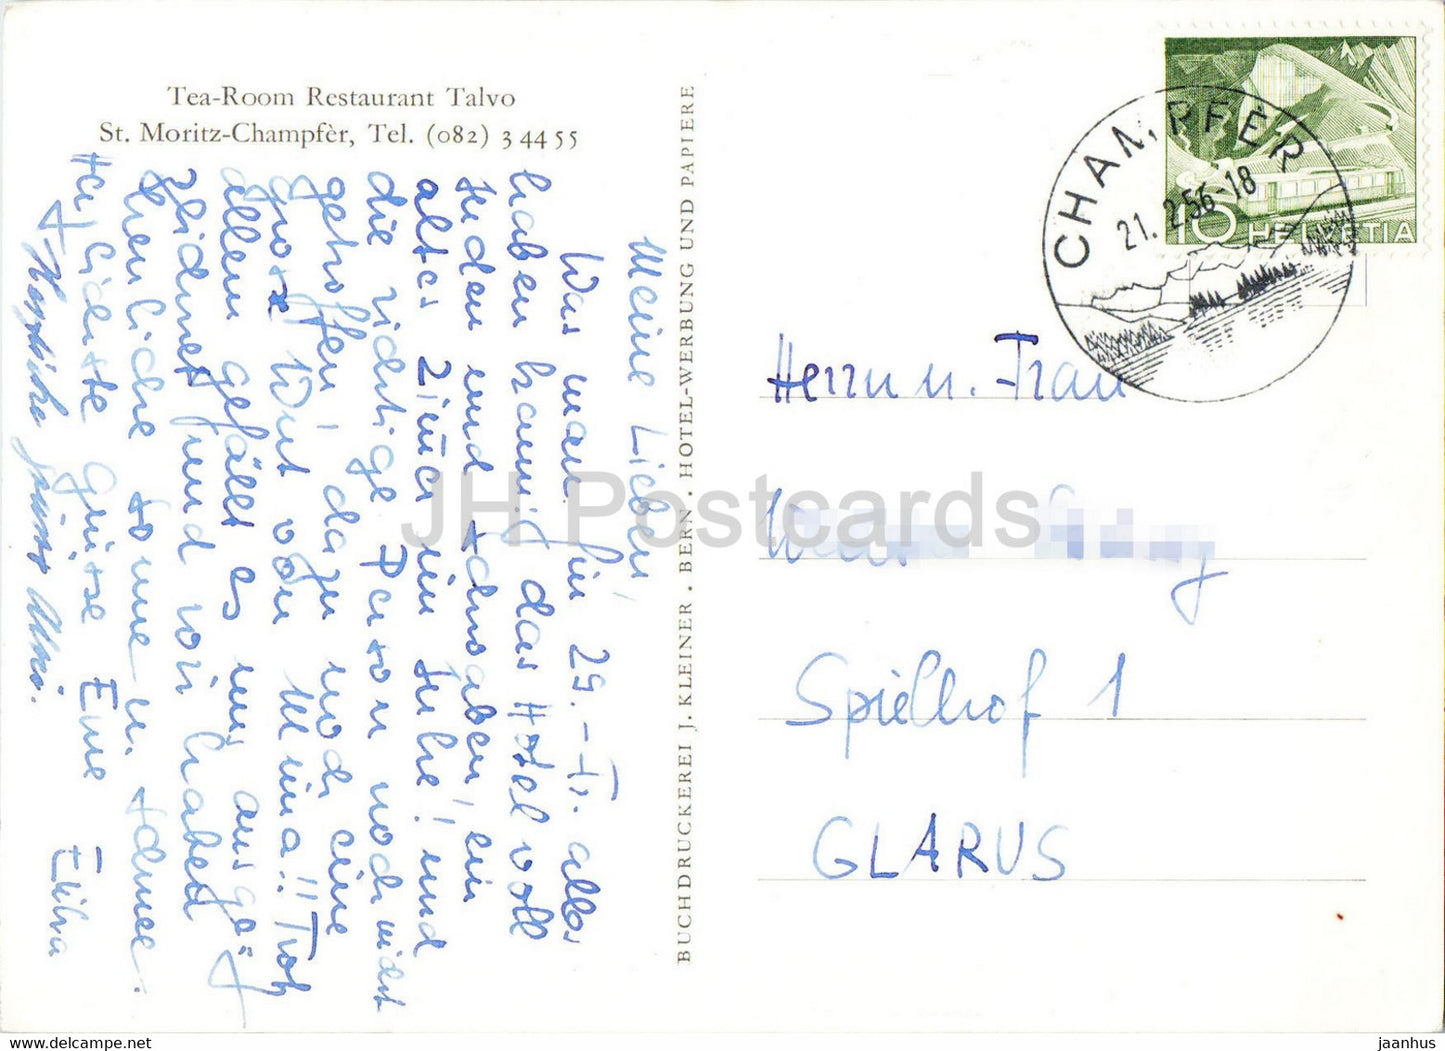 Tea-Room Restaurant Talvo
St. Moritz-Champfèr, Tel. (082) 3 44 55
Meine Lieben!
Was man für 29.- Fr. alles
haben kann, das Hotel voll
Juden und Schwaben, ein
altes Zimmer ein Juhe! und
die richtige Person noch nicht
getroffen, dazu noch eine
grosse Wut von Mina!! Trotz
allem gefällt es mir ausge-
zeichnet und wir haben
herrliche Sonne u. Schnee.
Herzlichste Grüsse Eure
BUCHDRUCKEREI J. KLEINER . BERN . HOTEL-WERBUNG UND PAPIERE
CHAMPFER
21. 2. 56 -18
10 HELVETIA
Herrn u. Frau
Spielhof 1
GLARUS
JH Postcards
eu.delcampe.net
jaanhus